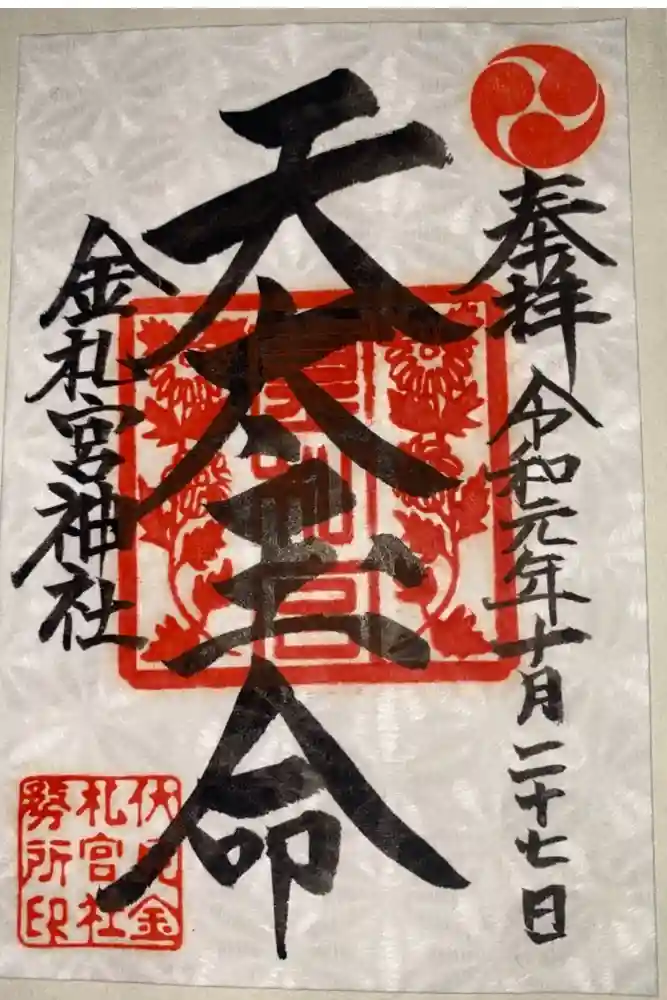 奉拝
令和元年十月二十七日
天太玉命
金札宮神社
伏見金
札宮社
務所印